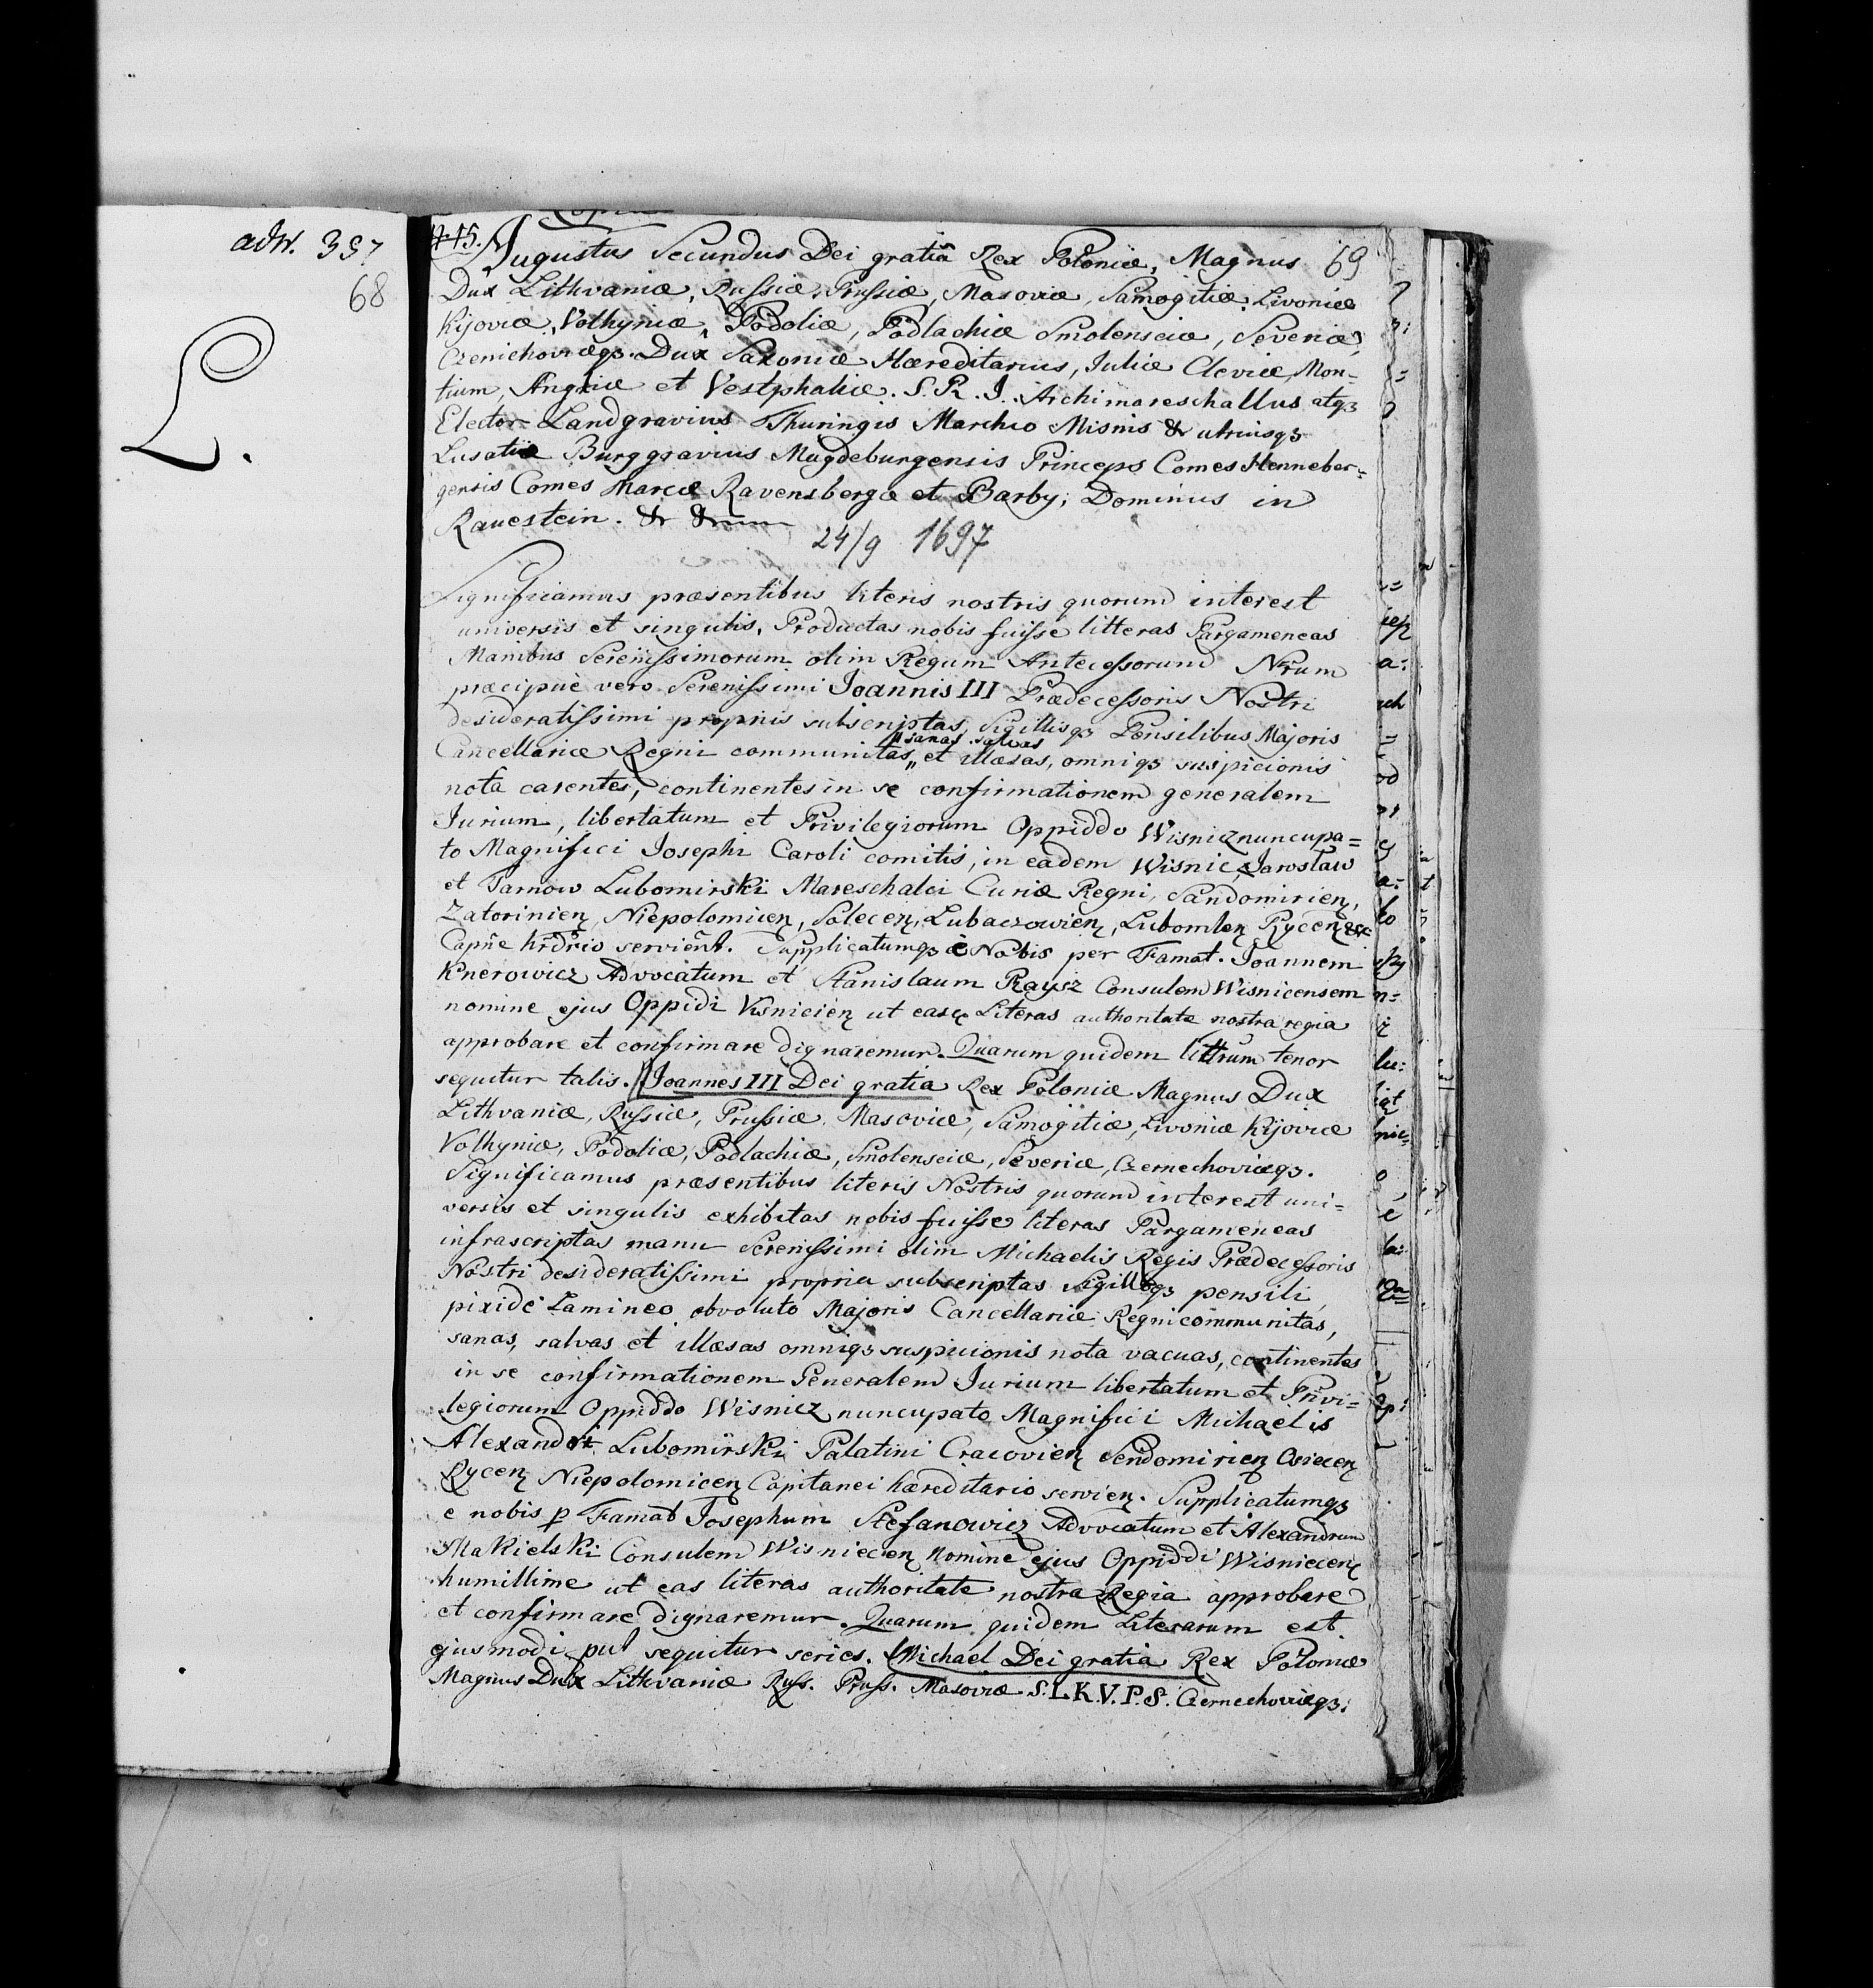 adN. 357
68
L.
Copia
N 15. Augustus Secundus Dei gratiâ Rex Poloniæ, Magnus 69
Dux Lithvaniæ, Russiæ, Prussiæ, Masoviæ, Samogitiæ, Livoniæ
Kijoviæ, Volhyniæ, Podoliæ, Podlachiæ Smolensciæ, Severiæ,
Czernichoviæqȝ. Dux Saxoniæ Hæreditarius, Juliæ Cleviæ, Mon-
tium, Angriæ et Vestphaliæ. S. R. I. Archimareschallus atqȝ
Elector Landgravius Thuringis Marchio Misnis & utriusqȝ
Lusatiæ Burggravius Magdeburgensis Princeps Comes Henneber-
gensis Comes Marcæ Ravensbergæ et Barby, Dominus in
Ravestein. & &
24/9 1697
Significamus præsentibus literis nostris quorum interest
universis et singulis, Productas nobis fuisse litteras Pargameneas
Manibus Serenissimorum olim Regum Antecessorum Nrum
præcipuè vero Serenissimi Joannis III Prædecessoris Nostri
desideratissimi propriis subscriptas, Sigillisqȝ Pensilibus Majoris
Cancellariæ Regni communitas, " sanas salvas et illæsas, omniqȝ suspicionis
notâ carentes, continentes in se confirmationem generalem
Jurium, libertatum et Privilegiorum Oppiddo Wisnicz nuncupa=
to Magnifici Josephi Caroli comitis, in eadem Wisnic, Jaroslaw
et Tarnow Lubomirski Mareschalci Curiæ Regni, Sandomirien,
Zatorinien, Niepolomicen, Solecen, Lubaczowien, Lubomlen Rycen &c
Capñe hrdrio servieñt. Supplicatumqȝ è Nobis per Famat. Joannem
Knerowicz Advocatum et Stanislaum Raysz Consulem Wisnicensem
nomine ejus Oppidi Visnicien ut easq Literas authoritate nostra regia
approbare et confirmare dignaremur. Quarum quidem littrum tenor
sequitur talis. Joannes III Dei gratia Rex Poloniæ Magnus Dux
Lithvaniæ, Russiæ, Prussiæ, Masoviæ, Samogitiæ, Livoniæ Kijoviæ
Volhyniæ, Podoliæ, Podlachiæ, Smolensciæ, Severiæ, Czernechoviæqȝ.
Significamus præsentibus literis Nostris quorum interest uni=
versis et singulis exhibitas nobis fuisse literas Pargameneas
infrascriptas manu Serenissimi olim Michaelis Regis Prædecessoris
Nostri desideratissimi propria subscriptas Sigilloqȝ pensili,
pixide Lamineo obvoluto Majoris Cancellariæ Regni communitas,
sanas, salvas et illæsas omniqȝ suspicionis nota vacuas, continentes
in se confirmationem Generalem Jurium libertatum et Privi=
legiorum Oppiddo Wisnicz nuncupato Magnifici Michaelis
Alexandri Lubomirski Palatini Cracovien Sendomirien Osiecen
Rycen Niepolomicen Capitanei hæreditario servien. Supplicatumqȝ
e nobis p Famat Josephum Stefanowicz Advocatum et Alexandrum
Makielski Consulem Wisniecien Nomine ejus Oppiddi Wisniecien
humillime ut eas literas authoritate nostra Regia approbare
et confirmare dignaremur. Quarum quidem Literarum est
ejusmodi put sequitur series. Michael Dei gratia Rex Poloniæ
Magnus Dux Lithvaniæ Russ. Pruss. Masoviæ S. L. K. V. P. S. Czernechoviæqȝ: